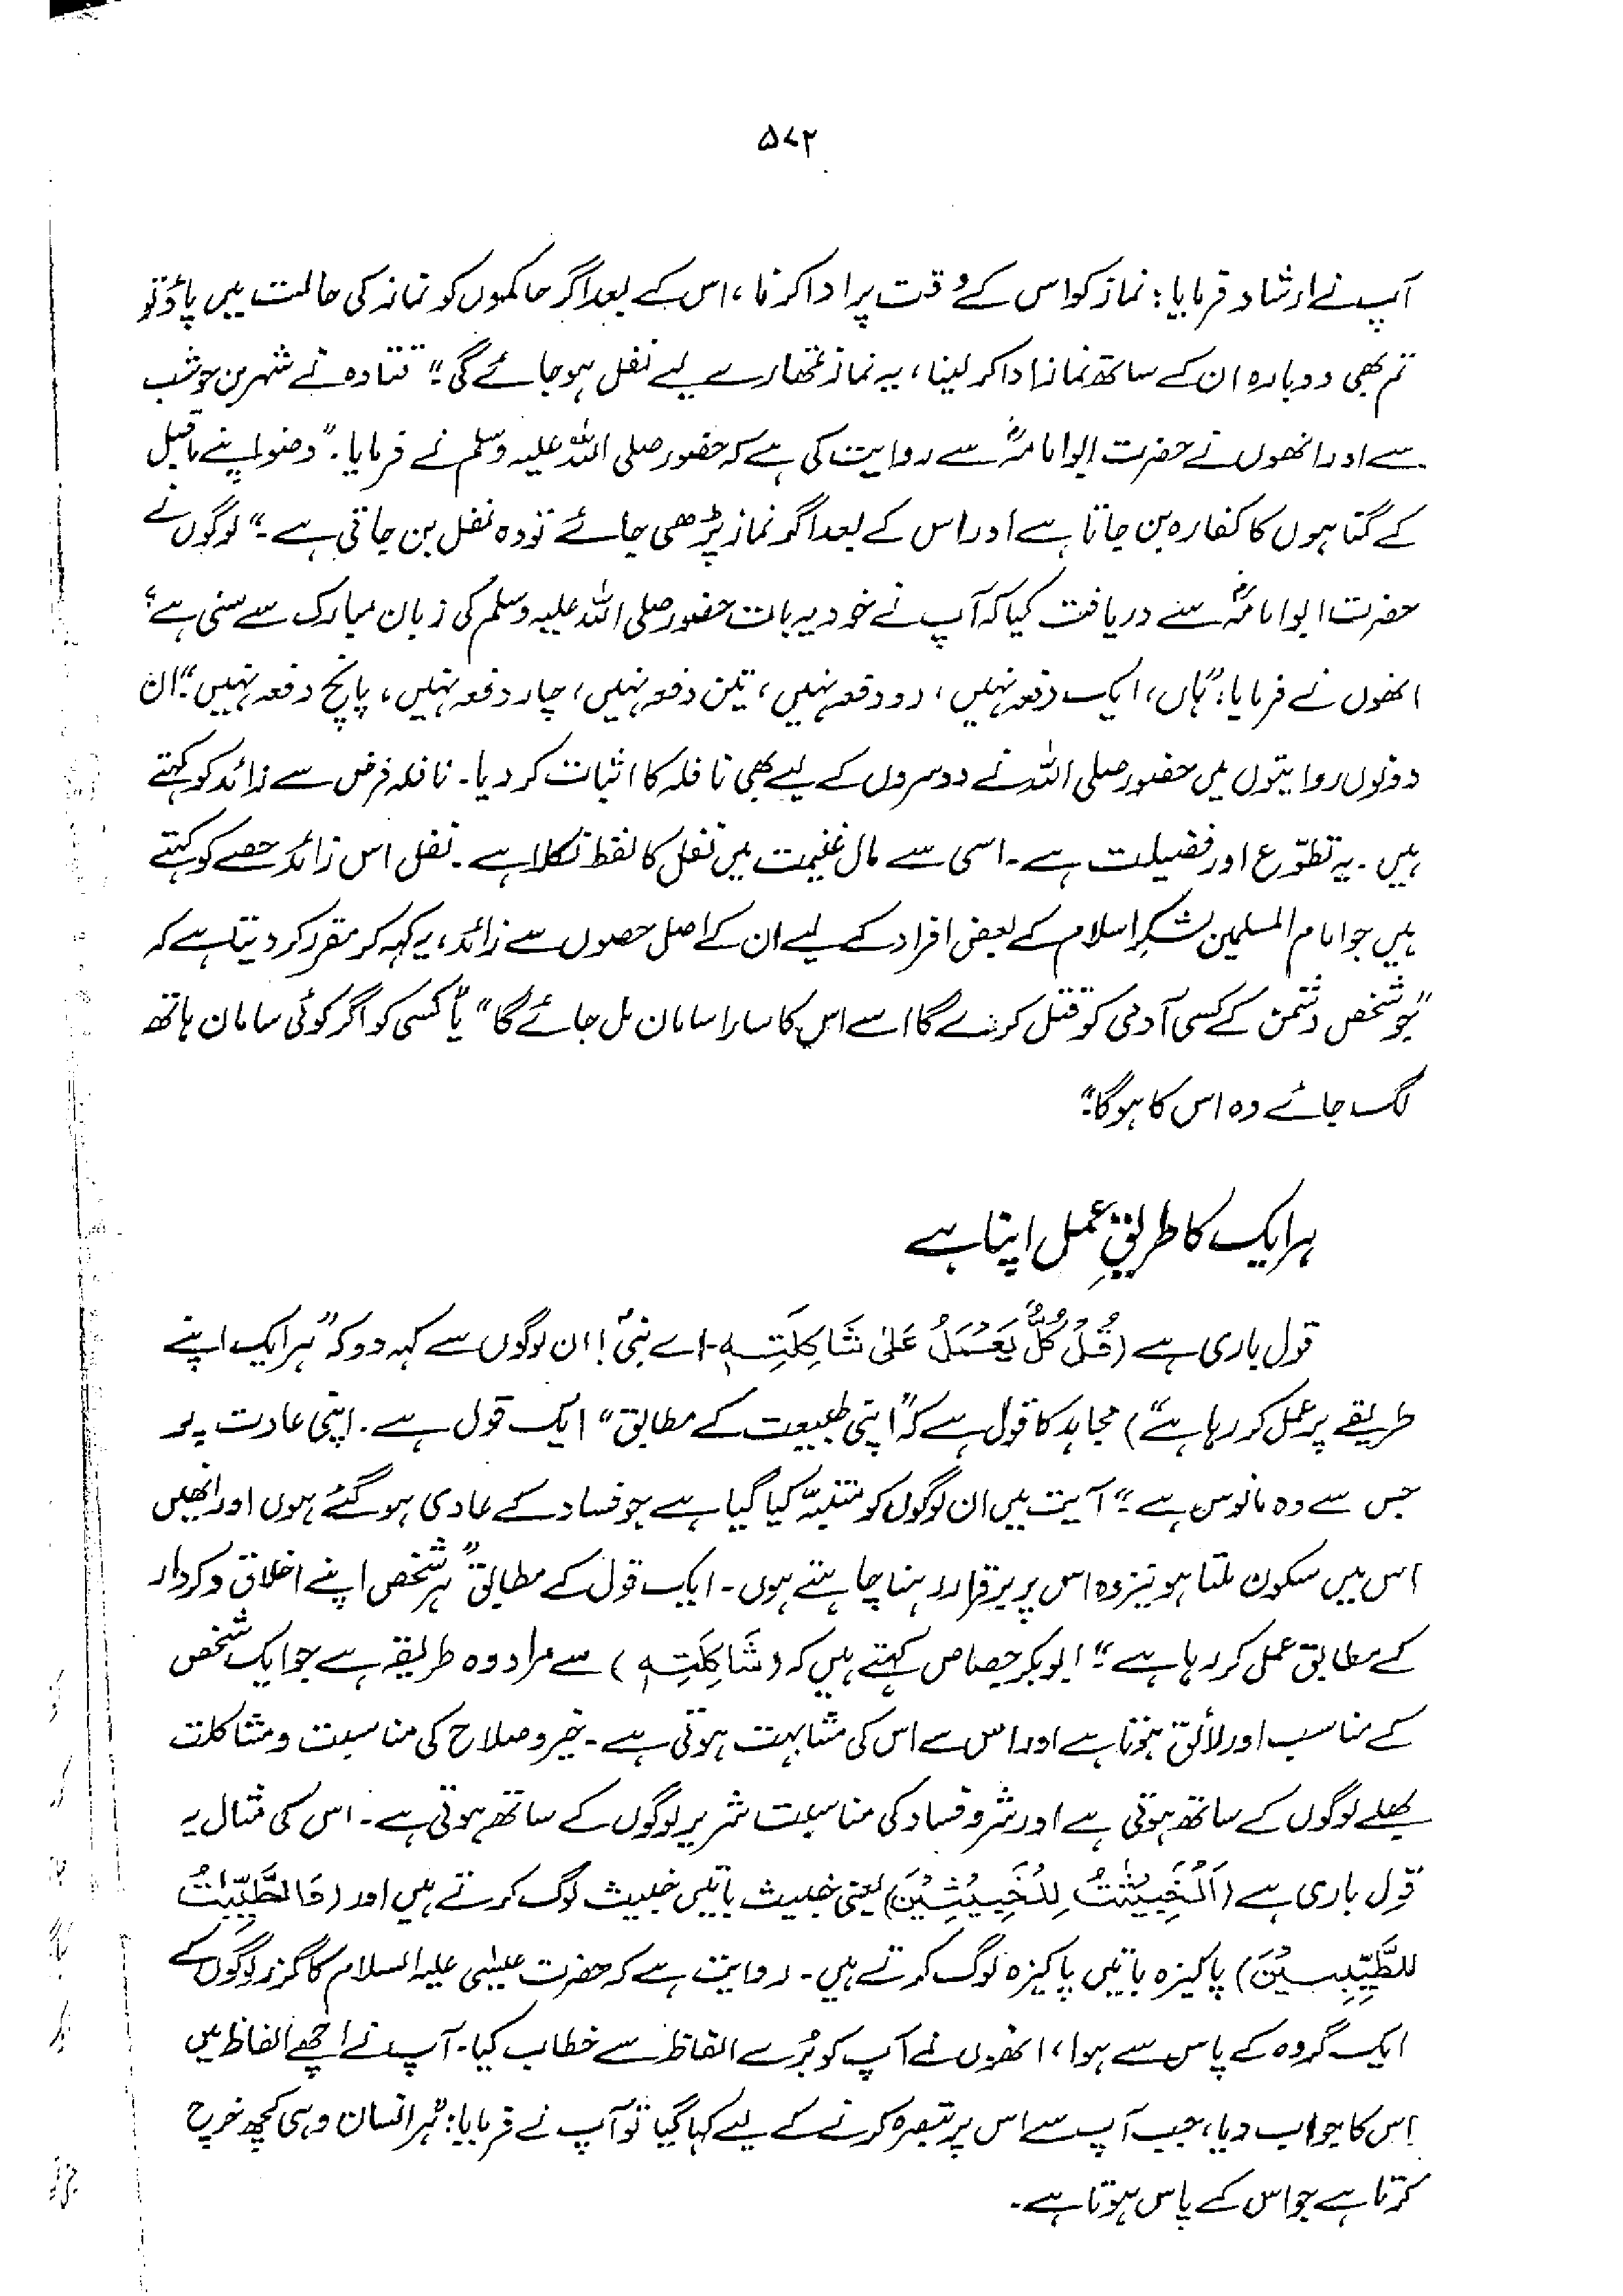 ۵۷۲
آپ نے ارشاد فرمایا: نماز کو اس کے وقت پر ادا کرنا، اس کے بعد اگر حاکموں کو نماز کی حالت میں پاؤ تو
تم بھی دوبارہ ان کے ساتھ نماز ادا کر لینا، یہ نماز تمھارے لیے نفل ہو جائے گی" قتادہ نے شہر بن حوشب
سے اور انھوں نے حضرت ابوامامہؓ سے روایت کی ہے کہ حضور صلی اللہ علیہ وسلم نے فرمایا۔ "وضو اپنے ماقبل
کے گناہوں کا کفارہ بن جاتا ہے اور اس کے بعد اگر نماز پڑھی جائے تو وہ نفل بن جاتی ہے۔" لوگوں نے
حضرت ابوامامہؓ سے دریافت کیا کہ آپ نے خود یہ بات حضور صلی اللہ علیہ وسلم کی زبان مبارک سے سنی ہے؟
انھوں نے فرمایا: "ہاں، ایک دفعہ نہیں، دو دفعہ نہیں، تین دفعہ نہیں، چار دفعہ نہیں، پانچ دفعہ نہیں"۔ ان
دونوں روایتوں میں حضور صلی اللہ نے دوسروں کے لیے بھی نافلہ کا اثبات کر دیا۔ نافلہ فرض سے زائد کو کہتے
ہیں۔ یہ تطوّع اور فضیلت ہے۔ اسی سے مال غنیمت میں نفل کا لفظ نکلا ہے۔ نفل اس زائد حصے کو کہتے
ہیں جو امام المسلمین لشکرِ اسلام کے بعض افراد کے لیے ان کے اصل حصوں سے زائد، یہ کہہ کر مقرر کر دیتا ہے کہ
"جو شخص دشمن کے کسی آدمی کو قتل کرے گا اسے اس کا سارا سامان مل جائے گا" یا "کسی کو اگر کوئی سامان ہاتھ
لگ جائے وہ اس کا ہوگا"۔
ہر ایک کا طریقِ عمل اپنا ہے
قول باری ہے (قُلْ كُلٌّ يَّعْمَلُ عَلٰى شَاكِلَتِهٖ۔ اے نبیؐ! ان لوگوں سے کہہ دو کہ "ہر ایک اپنے
طریقے پر عمل کر رہا ہے") مجاہد کا قول ہے کہ "اپنی طبیعت کے مطابق" ایک قول ہے۔ اپنی عادت پر
جس سے وہ مانوس ہے"۔ آیت میں ان لوگوں کو متنبہّ کیا گیا ہے جو فساد کے عادی ہو گئے ہوں اور انھیں
اس میں سکون ملتا ہو نیز وہ اس پر برقرار رہنا چاہتے ہوں۔ ایک قول کے مطابق "ہر شخص اپنے اخلاق و کردار
کے مطابق عمل کر رہا ہے"۔ ابوبکر جصاص کہتے ہیں کہ (شَاكِلَتِهٖ) سے مراد وہ طریقہ ہے جو ایک شخص
کے مناسب اور لائق ہوتا ہے اور اس سے اس کی مشابہت ہوتی ہے۔ خیر و صلاح کی مناسبت و مشاکلت
بھلے لوگوں کے ساتھ ہوتی ہے اور شر و فساد کی مناسبت شریر لوگوں کے ساتھ ہوتی ہے۔ اس کی مثال یہ
قول باری ہے (اَلْخَبِيْثٰتُ لِلْخَبِيْثِيْنَ) یعنی خبیث باتیں خبیث لوگ کرتے ہیں اور (وَالطَّيِّبٰتُ
لِلطَّيِّبِيْنَ) پاکیزہ باتیں پاکیزہ لوگ کرتے ہیں۔ روایت ہے کہ حضرت عیسٰی علیہ السلام کا گزر لوگوں کے
ایک گروہ کے پاس سے ہوا، انھوں نے آپ کو بُرے الفاظ سے خطاب کیا۔ آپ نے اچھے الفاظ میں
اس کا جواب دیا، جب آپ سے اس پر تبصرہ کرنے کے لیے کہا گیا تو آپ نے فرمایا: "ہر انسان وہی کچھ خرچ
کرتا ہے جو اس کے پاس ہوتا ہے۔